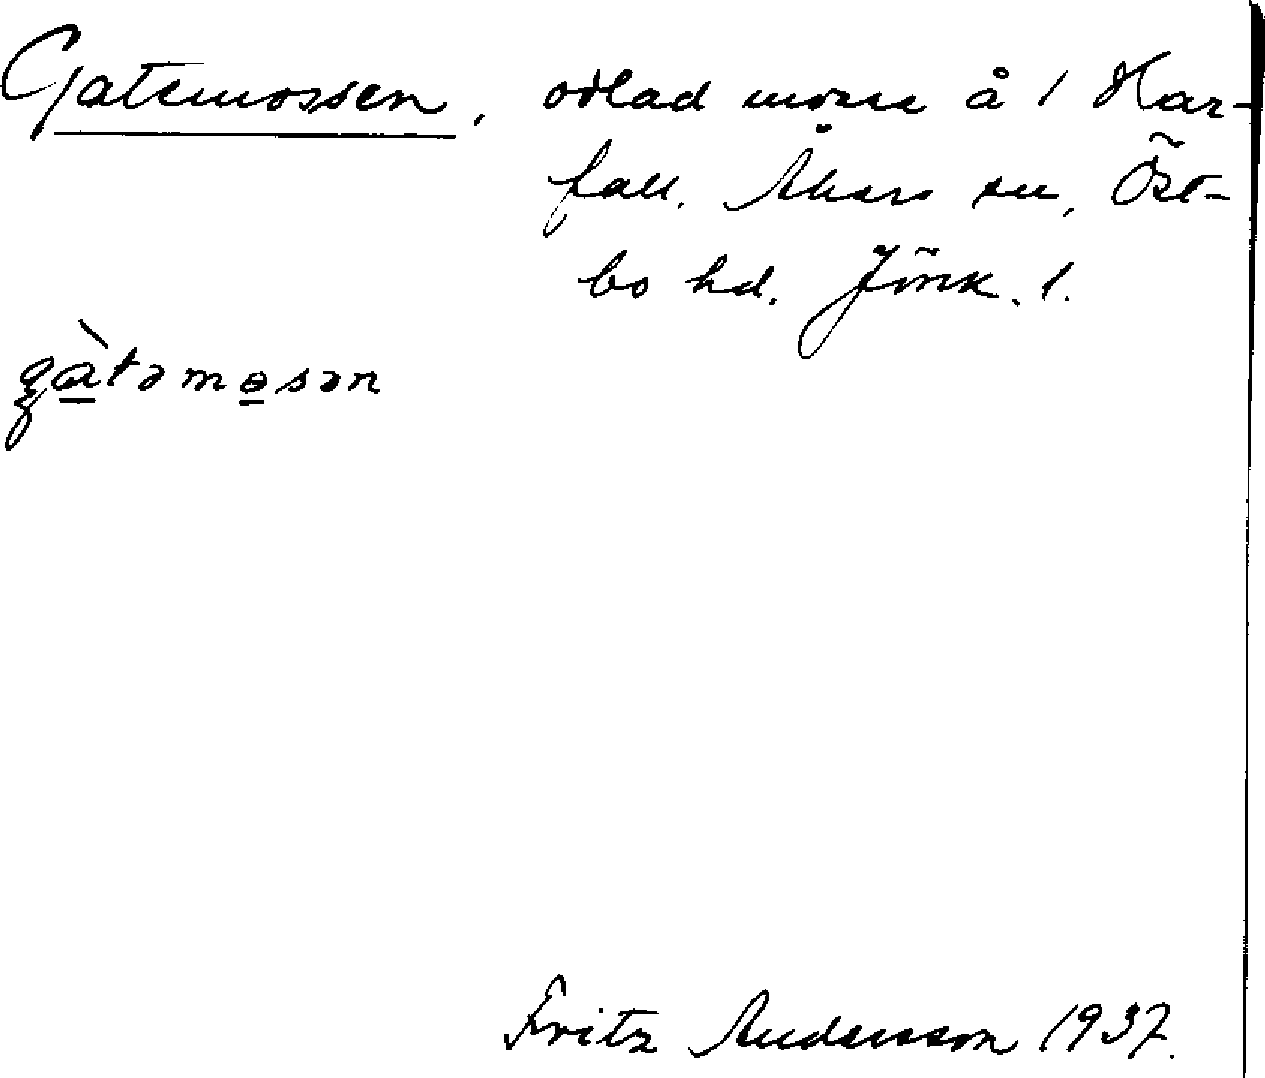 Gatemossen, odlad mosse å 1 Har-
fall. Åkers sn, Öst-
bo hd. Jönk. l.
gàtəmɵsən
Fritz Andersson 1937.